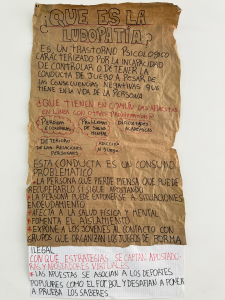 ¿QUE ES LA
LUDOPATIA?
ES UN TRASTORNO PSICOLOGICO
CARACTERIZADO POR LA INCAPACIDAD
DE CONTROLAR O DETENER LA
CONDUCTA DE JUEGO A PESAR DE
LAS CONSECUENCIAS NEGATIVAS QUE
TIENE EN LA VIDA DE LA PERSONA
¿QUE TIENEN EN COMÚN LAS APUESTAS
EN LINEA CON OTRAS
PERDIDAS ECONOMICAS
PROBLEMAS DE SALUD MENTAL
DIFICULTADES ACADEMICAS
DETERIORO DE LAS RELACIONES PERSONALES
ESTA CONDUCTA ES UN CONSUMO
PROBLEMATICO
LA PERSONA QUE PIERDE PIENSA QUE PUEDE
RECUPERARLO SI SIGUE APOSTANDO
LA PERSONA PUEDE EXPONERSE A SITUACIONES
ENDEUDAMIENTO
AFECTA A LA SALUD FISICA Y MENTAL
FOMENTA EL AISLAMIENTO
EXPONE A LOS JOVENES AL CONTACTO CON
GRUPOS QUE ORGANIZAN LOS JUEGOS DE FORMA
ILEGAL
CON QUE ESTRATEGIAS SE CAPTAN APOSTADO-
RAS Y APOSTADORES VIRTUALES
LAS APUESTAS SE ASOCIAN A LOS DEPORTES
POPULARES COMO EL FUTBOL Y DESAFIAN A PONER
A PRUEBA LOS SABERES.